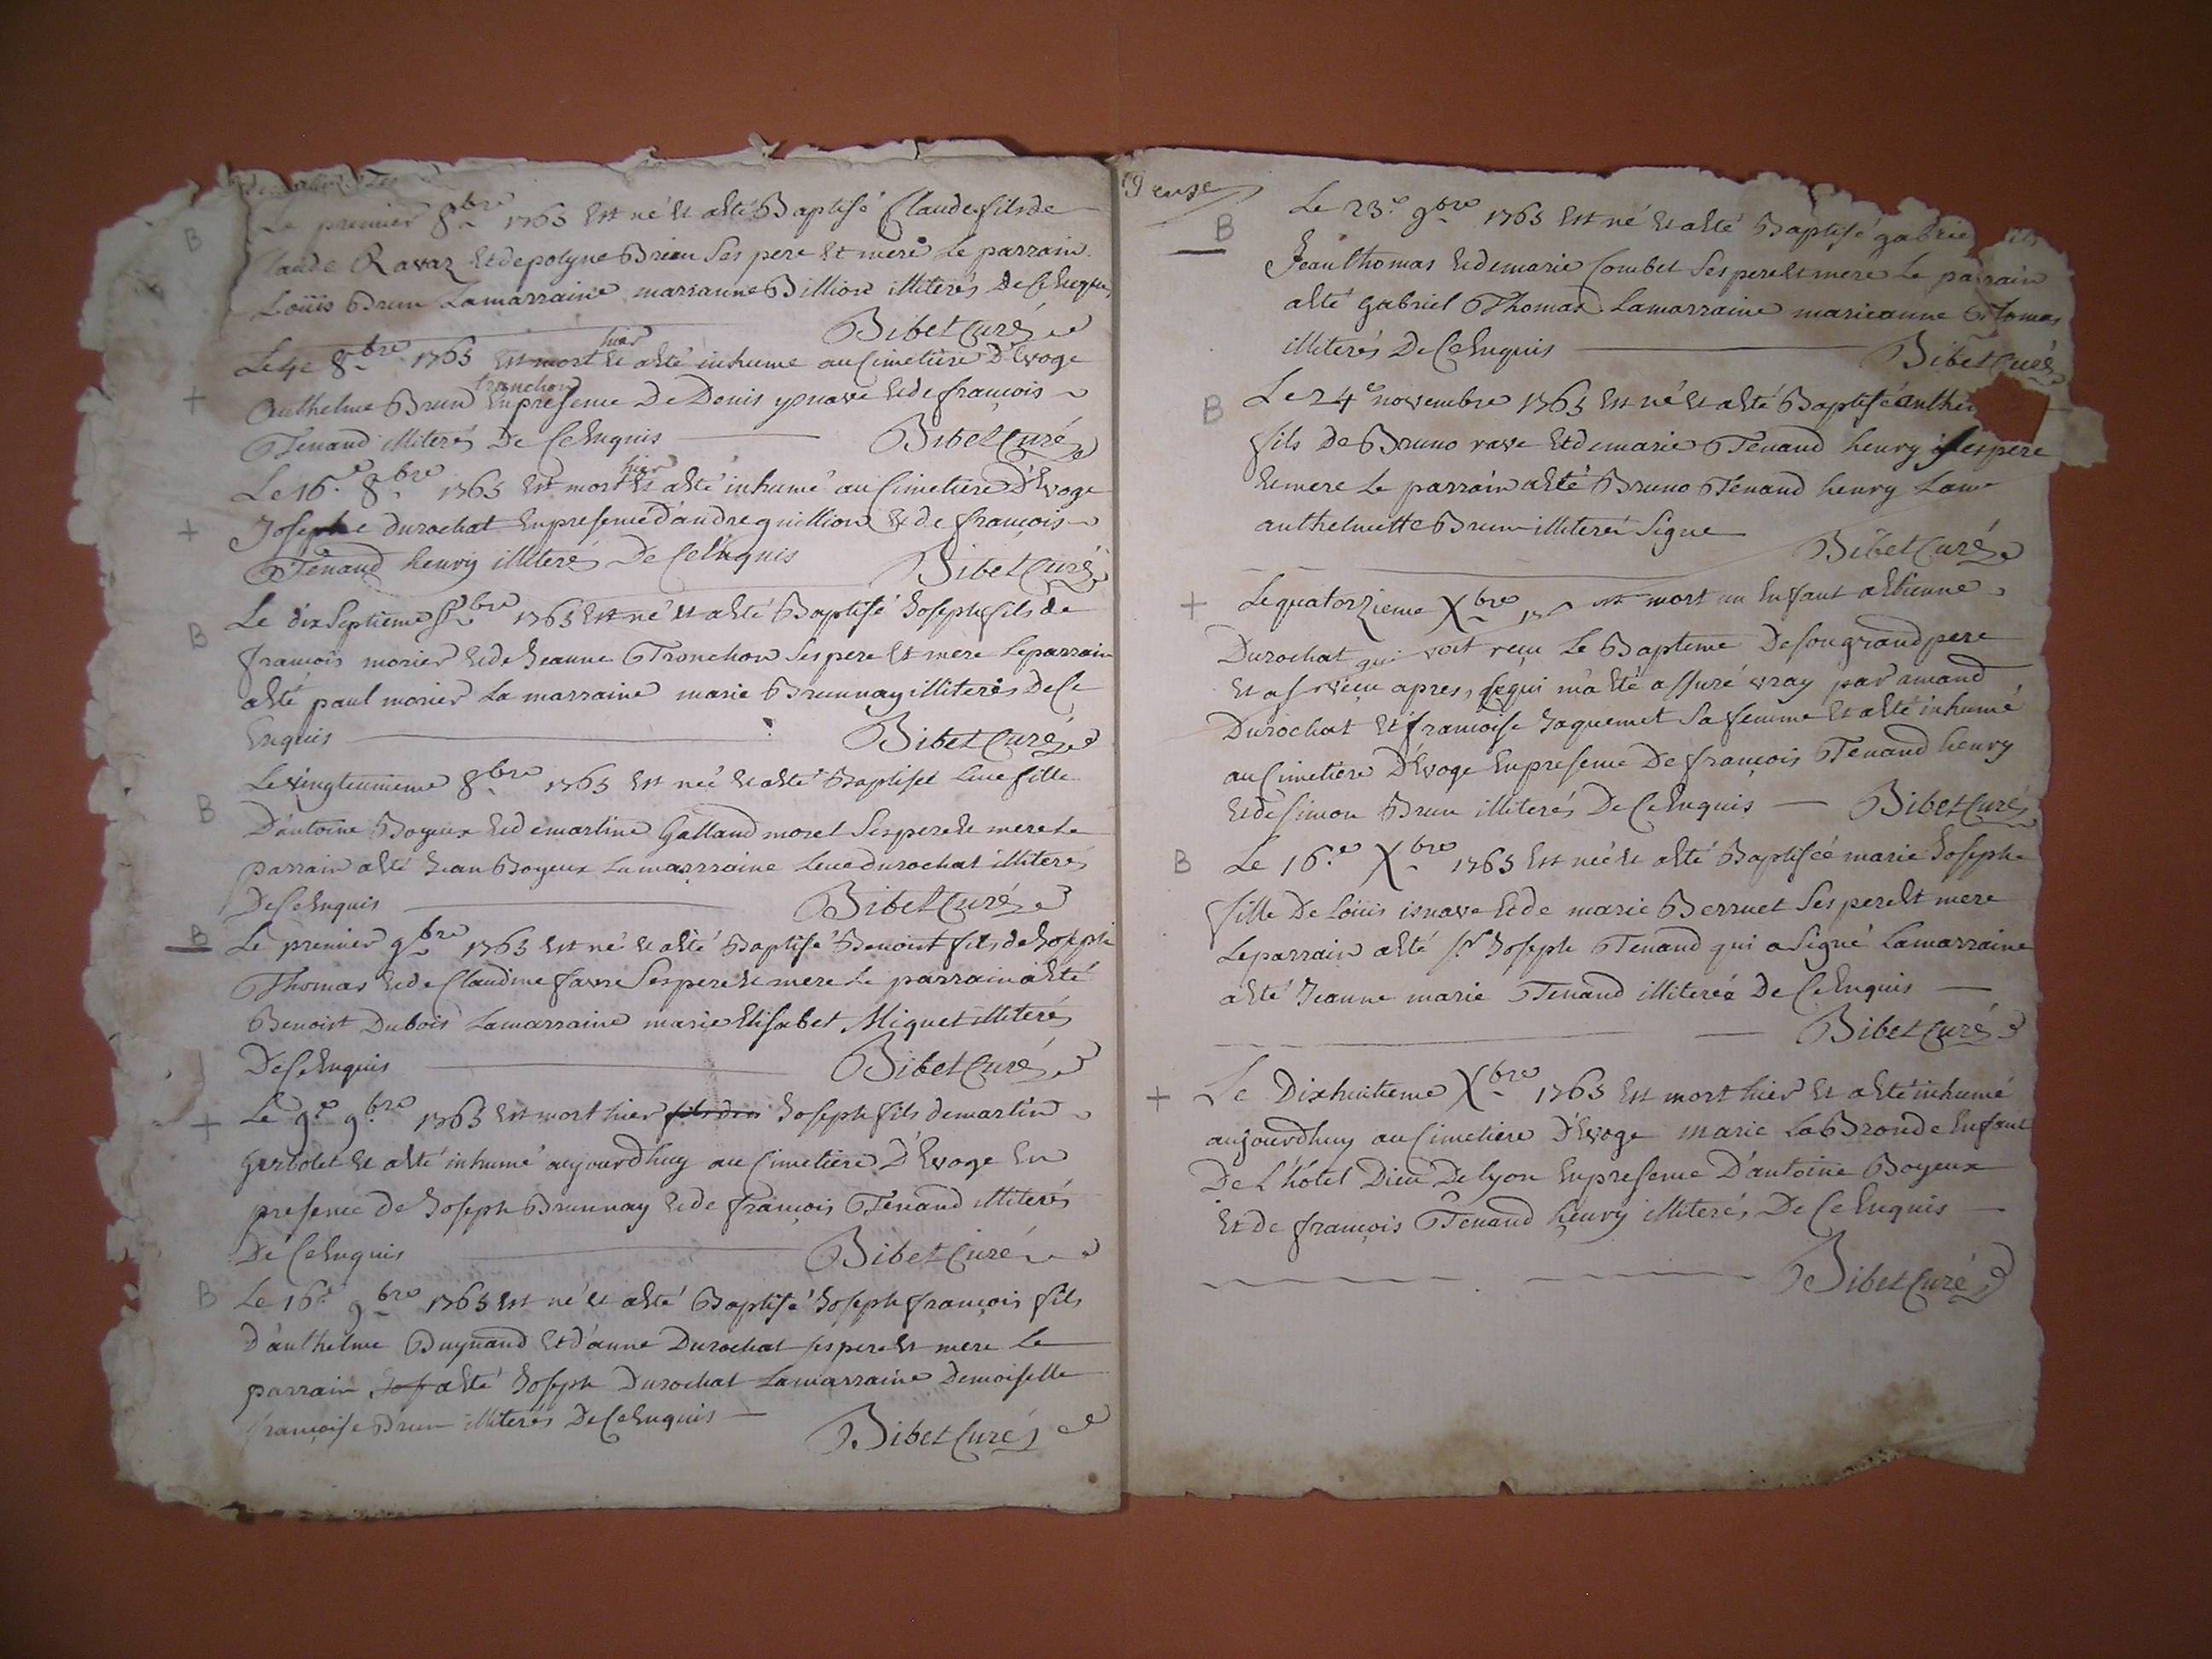 B
Le premier 8bre 1763 Est né Et aété Baptisé Claude fils de
Claude Ravaz Et de polyne Brieu Ses pere Et mere Le parrain
Loüis Brun Lamarraine marianne Billion illiterés De Ce Enquis
Bibet Curé
+
Le 4e 8bre 1763 Est mort hier Et aété inhumé au Cimetiere D'Evoge
Anthelme Brun tranchon En presence De Denis ysnave Et de françois
Tenand illiterés De Ce Enquis Bibet Curé
+
Le 16e 8bre 1763 Est mort hier Et aété inhumé au Cimetiere D'Evoge
Josephe durochat En presence d'andre guillion Et de françois
Tenand henry illiterés De Ce Enquis Bibet Curé
B
Le dix Septieme 8bre 1763 Est né Et aété Baptisé Joseph fils de
françois morier Et de Jeanne Tronchon Ses pere Et mere Le parrain
aété paul morier La marraine marie Brunnay illiterés De Ce
Enquis Bibet Curé
B
Le vingtunieme 8bre 1763 Est née Et aété Baptisée Luce fille
D'antoine Boyeux Et de martine Galland morel Ses pere Et mere Le
parrain aété Jean Boyeux La marraine Luce durochat illiterés
De Ce Enquis Bibet Curé
B
Le premier 9bre 1763 Est né Et aété Baptisé Benoist fils de Joseph
Thomas Et de Claudine favre Ses pere Et mere Le parrain aété
Benoist Dubois Lamarraine marie Elisabet Miguet illiterés
De Ce Enquis Bibet Curé
+
Le 9e 9bre 1763 Est mort hier Joseph fils de martin
gerbolet Et aété inhumé aujourdhuy au Cimetiere D'Evoge En
presence de Joseph Brunnay Et de françois Tenand illiterés
De Ce Enquis Bibet Curé
B
Le 16e 9bre 1763 Est né Et aété Baptisé Joseph françois fils
D'anthelme Buynand Et d'anne Durochat ses pere Et mere Le
parrain aété Joseph Durochat Lamarraine Demoiselle
françoise Brun illiterés De Ce Enquis
Bibet Curé
B
Le 23e 9bre 1763 Est né Et aété Baptisé gabriel fils
Jean Thomas Et de marie Combet Ses pere Et mere Le parrain
aété gabriel Thomas Lamarraine marieanne Thomas
illiterés De Ce Enquis Bibet Curé
B
Le 24e novembre 1763 Est né Et aété Baptisé anthe
fils De Bruno rave Et de marie Tenand henry Ses pere
Et mere Le parrain aété Bruno Tenand henry Lam
anthelmette Brun illiteré Signe
Bibet Curé
+
Le quatorzieme Xbre Est mort un Enfant a Etienne
Durochat qui avoit reçu Le Bapteme De son grand pere
Et a survécu apres, Ce qui m'a Eté assuré vray par amand
Durochat Et françoise Jaquemet Sa femme Et aété inhumé
au Cimetiere D'Evoge En presence De françois Tenand henry
Et de Simon Brun illiterés De Ce Enquis Bibet Curé
B
Le 16e Xbre 1763 Est née Et aété Baptiseé marie Joseph
fille De Loüis isnave Et de marie Berruet Ses pere Et mere
Le parrain aété Sr Joseph Tenand qui a Signé Lamarraine
aété Jeanne marie Tenand illiterée De Ce Enquis
Bibet Curé
+
Le Dixhuitieme Xbre 1763 Est mort hier Et aété inhumé
aujourdhuy au Cimetiere D'Evoge marie LaBronde Enfant
De L'hôtel Dieu De Lyon En presence D'antoine Boyeux
Et de françois Tenand henry illiterés De Ce Enquis
Bibet Curé